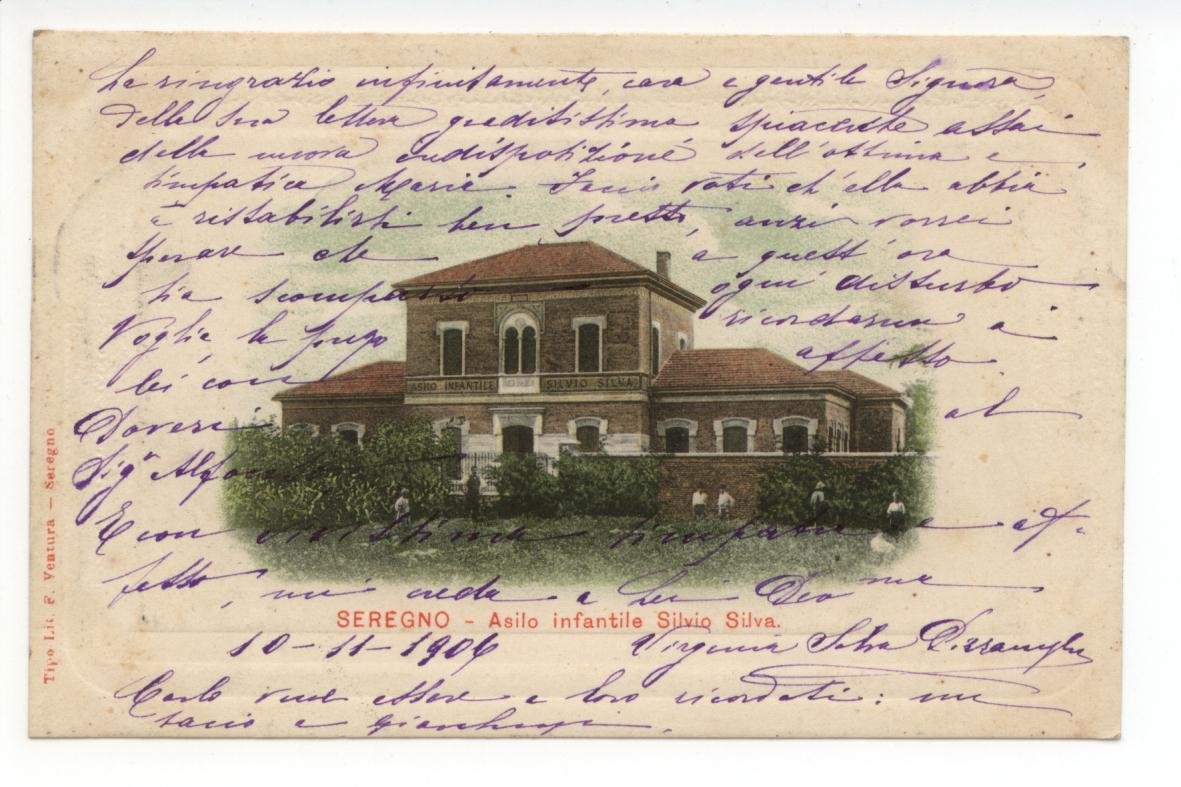 La ringrazio infinitamente, cara e gentile Signora,
della sua lettera graditissima spiacente assai
della nuova indisposizione dell'ottima e
simpatica Maria. Faccio voti ch'ella abbia
a ristabilirsi ben presto, anzi vorrei
sperare che a quest'ora
sia scomparso ogni disturbo
Voglia, la prego ricordarmi a
lei con affetto.
Doveri al
Sig.r
ASILO INFANTILE SILVIO SILVA
E con vivissima simpatia e af-
fetto, mi creda a Lei Dev ma
SEREGNO - Asilo infantile Silvio Silva.
10-11-1906 Virginia Silva
Carlo vuol essere a loro ricordato:
bacio a
Tipo Lit. F. Ventura — Seregno